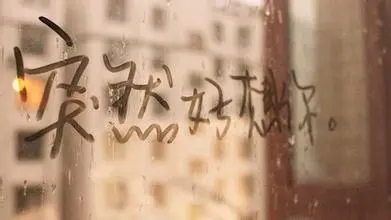 突然好想你。